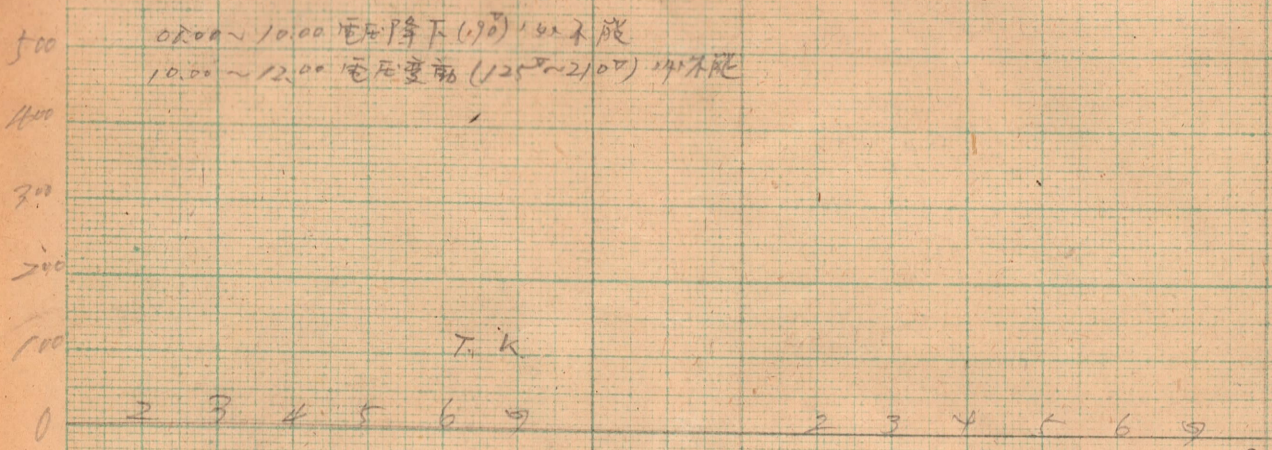 08.00～10.00 電圧降下(190V) 不能
10.00～12.00 電圧変動(125V～210V) 不能
500
400
300
200
100
T. K
0
2 3 4 5 6 7 2 3 4 5 6 7